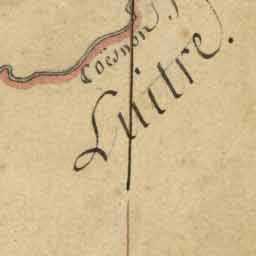 Coësnon
Luitre.